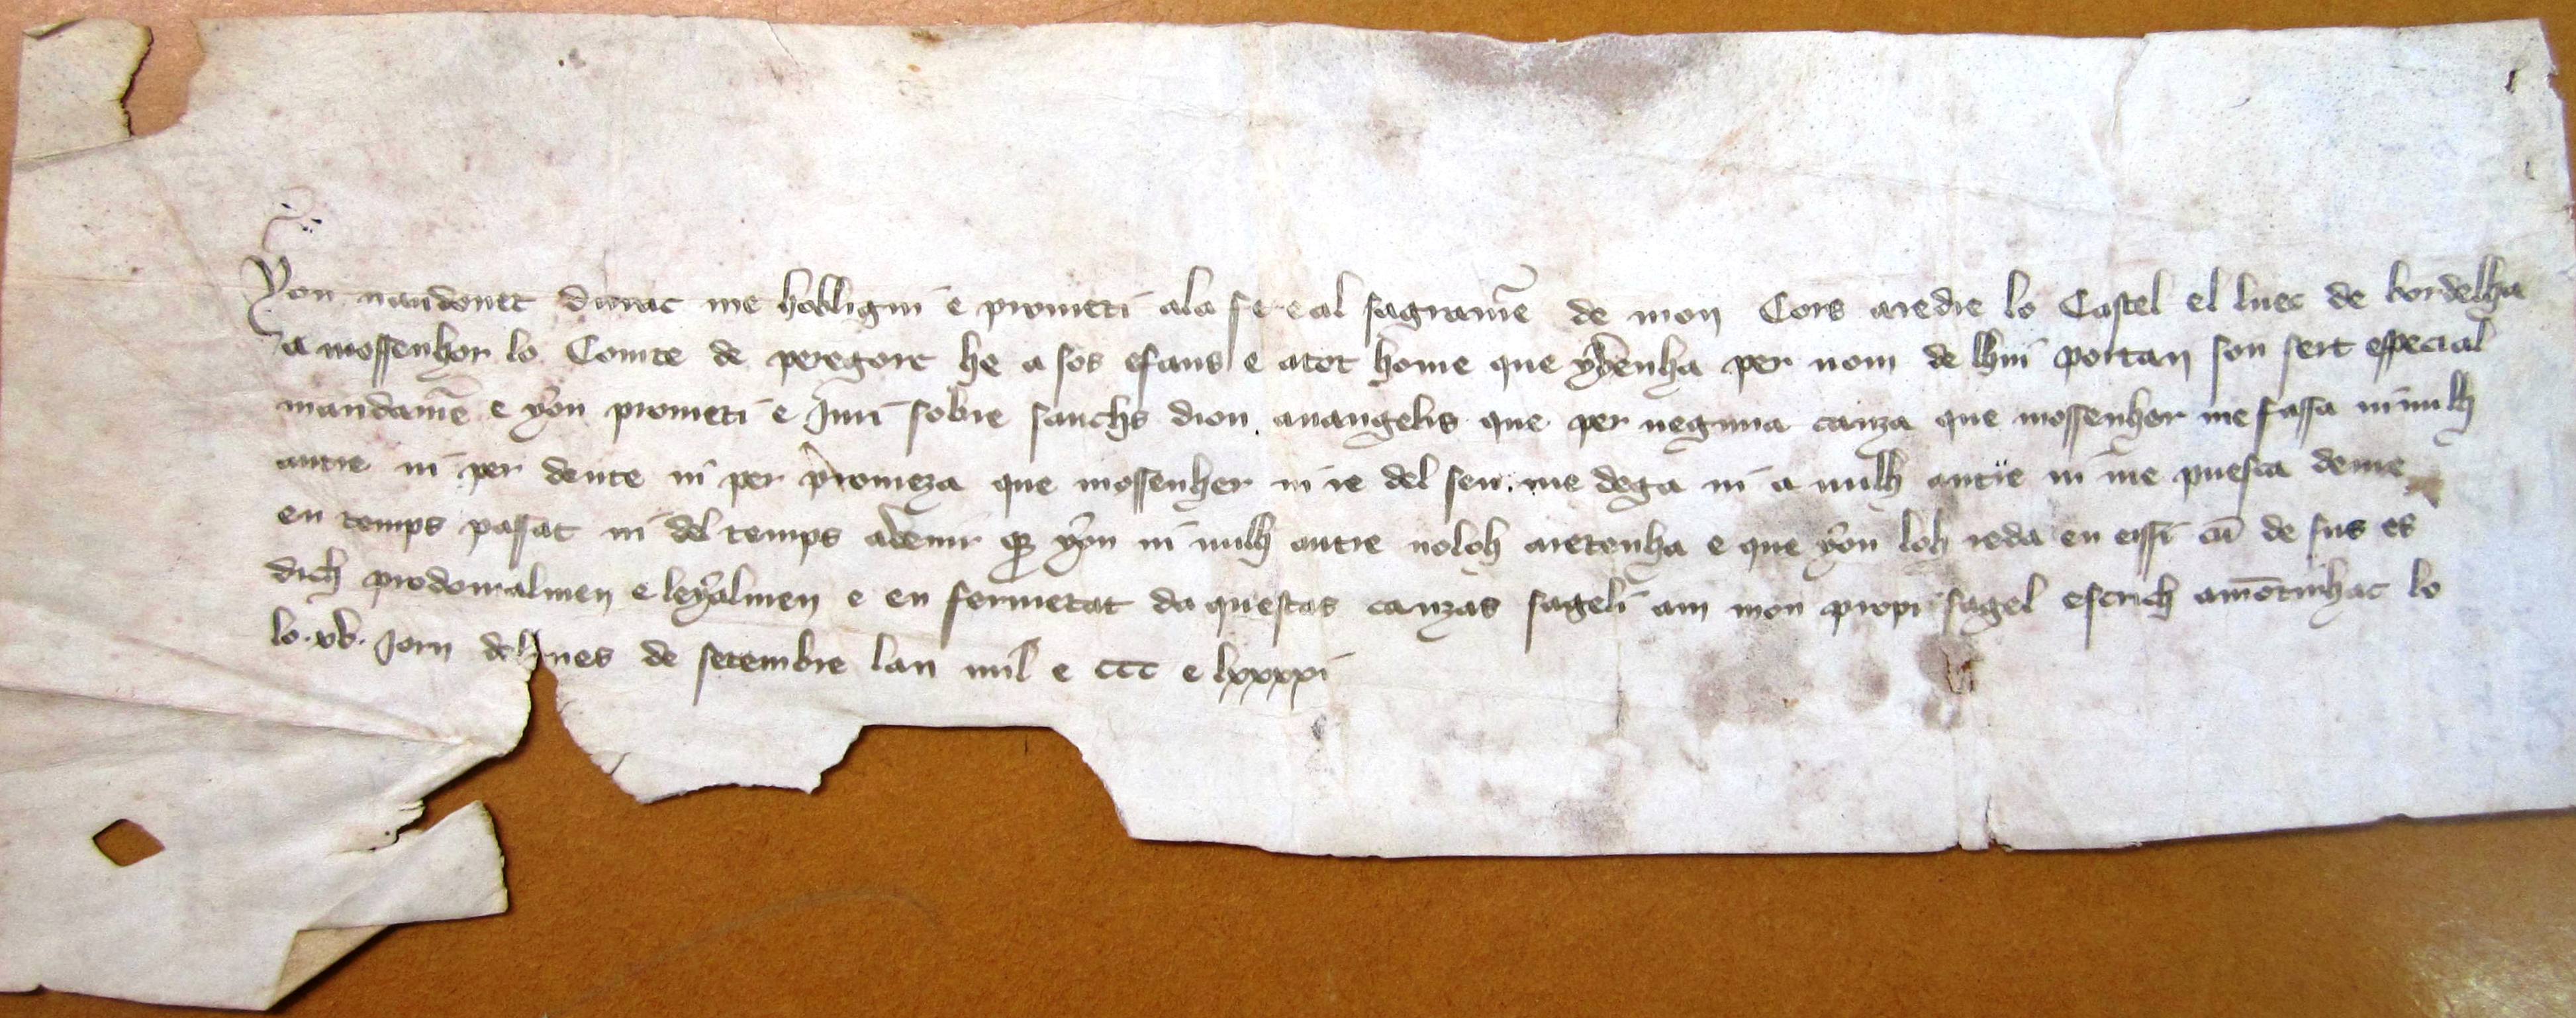 You naudonet durac me hobligui e prometi ala fe e al sagramē de mon Cors aredre lo Castel el luec de bordelha
a mossenhor lo Comte de peregorc he a sos efans e atot home que yvenha per nom de lhui portan son sert especial
mandamē e you prometi e Juri sobre sanchs diou avangelis que per neguna cauza que mossenhor me fassa ni nulh
autre ni per deute ni per promeza que mossenher ni re del seu me dega ni a nulh autre ni me puesca dever
en temps passat ni del temps avenir q̄ you ni nulh autre noloh aretenha e que you loh reda en eissi cū de sus es
dich prodomalmen e leyalmen e en fermetat da questas cauzas sageli am mon propri sagel escrich amōtinhac lo
lo .xv. Jorn del mes de setembre lan mil e ccc e lxxxxi